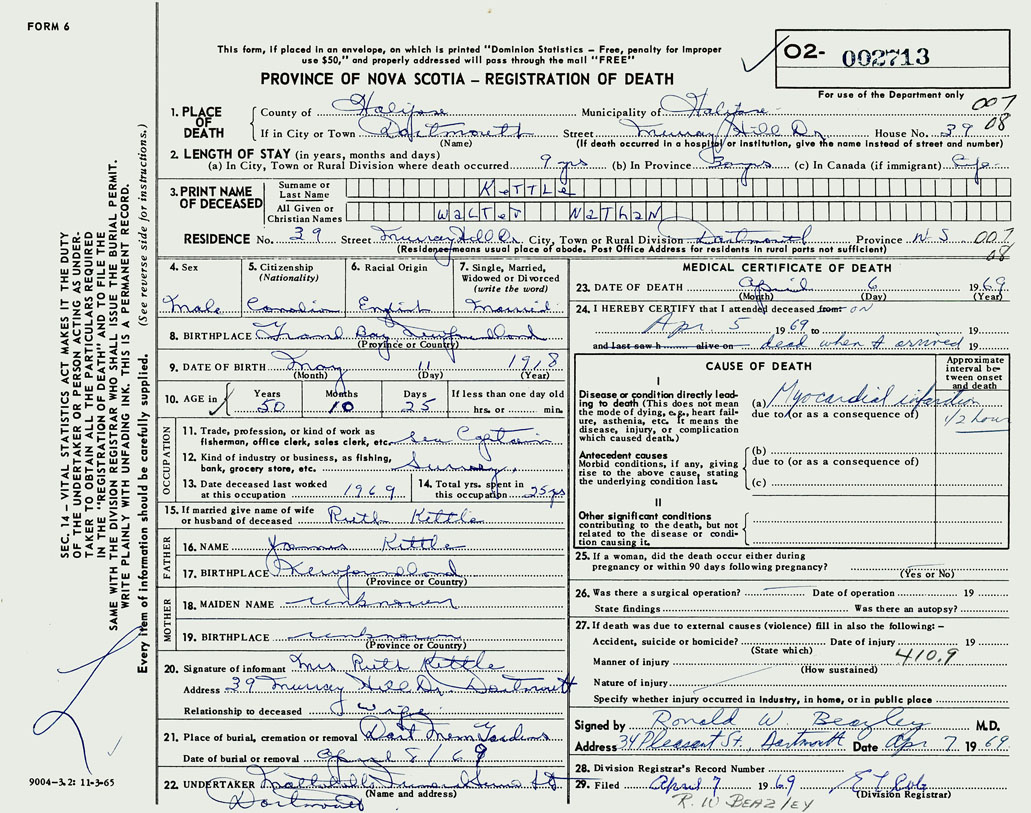 FORM 6
This form, if placed in an envelope, on which is printed "Dominion Statistics – Free, penalty for improper
use $50," and properly addressed will pass through the mail "FREE"
O2- 002713
PROVINCE OF NOVA SCOTIA – REGISTRATION OF DEATH
For use of the Department only
007
08
1. PLACE OF DEATH
County of Halifax Municipality of Halifax
If in City or Town Dartmouth Street Murray Hill Dr. House No. 39
(Name) (If death occurred in a hospital or institution, give the name instead of street and number)
2. LENGTH OF STAY (in years, months and days)
(a) In City, Town or Rural Division where death occurred 9 yrs (b) In Province (c) In Canada (if immigrant) Life
3. PRINT NAME OF DECEASED
Surname or Last Name KeTTLe
All Given or Christian Names WaLTer NaTHaN
RESIDENCE No. 39 Street Murray Hill Dr City, Town or Rural Division Dartmouth Province N S 007
08
(Residence means usual place of abode. Post Office Address for residents in rural parts not sufficient)
4. Sex Male
5. Citizenship (Nationality) Canadian
6. Racial Origin English
7. Single, Married, Widowed or Divorced (write the word) Married
8. BIRTHPLACE Bay Newfoundland
(Province or Country)
9. DATE OF BIRTH May 11 1918
(Month) (Day) (Year)
10. AGE in Years 50 Months 10 Days 25 If less than one day old hrs. or min.
OCCUPATION
11. Trade, profession, or kind of work as
fisherman, office clerk, sales clerk, etc. Sea Captain
12. Kind of industry or business, as fishing,
bank, grocery store, etc.
13. Date deceased last worked at this occupation 1969
14. Total yrs. spent in this occupation 25 yrs
15. If married give name of wife
or husband of deceased Ruth Kettle
FATHER
16. NAME James Kettle
17. BIRTHPLACE Newfoundland
(Province or Country)
MOTHER
18. MAIDEN NAME unknown
19. BIRTHPLACE unknown
(Province or Country)
20. Signature of informant Mrs Ruth Kettle
Address 39 Murray Hill Dr. Dartmouth
Relationship to deceased wife
21. Place of burial, cremation or removal Dart Mem Gardens
Date of burial or removal April 8/69
22. UNDERTAKER Funeral Home
(Name and address)
Dartmouth
MEDICAL CERTIFICATE OF DEATH
23. DATE OF DEATH April 6 1969
(Month) (Day) (Year)
24. I HEREBY CERTIFY that I attended deceased from ON
Apr 5 1969 to 19
and last saw h alive on dead when I arrived 19
CAUSE OF DEATH
Approximate interval between onset and death
I
Disease or condition directly leading
to death (This does not mean
the mode of dying, e.g., heart failure,
asthenia, etc. It means the
disease, injury, or complication
which caused death.)
(a) Myocardial infarction
due to (or as a consequence of)
1/2 hour
Antecedent causes
Morbid conditions, if any, giving
rise to the above cause, stating
the underlying condition last.
(b)
due to (or as a consequence of)
(c)
II
Other significant conditions
contributing to the death, but not
related to the disease or condition
causing it.
25. If a woman, did the death occur either during
pregnancy or within 90 days following pregnancy?
(Yes or No)
26. Was there a surgical operation? Date of operation 19
State findings Was there an autopsy?
27. If death was due to external causes (violence) fill in also the following: –
Accident, suicide or homicide? Date of injury 19
(State which)
410.9
Manner of injury
(How sustained)
Nature of injury
Specify whether injury occurred in industry, in home, or in public place
Signed by Ronald W. Beazley M.D.
Address 34 Pleasant St., Dartmouth Date Apr 7 1969
28. Division Registrar's Record Number
29. Filed April 7 1969
(Division Registrar)
R. W BEAZLEY
SEC. 14 – VITAL STATISTICS ACT MAKES IT THE DUTY
OF THE UNDERTAKER OR PERSON ACTING AS UNDER-
TAKER TO OBTAIN ALL THE PARTICULARS REQUIRED
IN THE "REGISTRATION OF DEATH" AND TO FILE THE
SAME WITH THE DIVISION REGISTRAR WHO SHALL ISSUE THE BURIAL PERMIT.
WRITE PLAINLY WITH UNFADING INK. THIS IS A PERMANENT RECORD.
Every item of information should be carefully supplied. (See reverse side for instructions.)
9004-3.2: 11-3-65